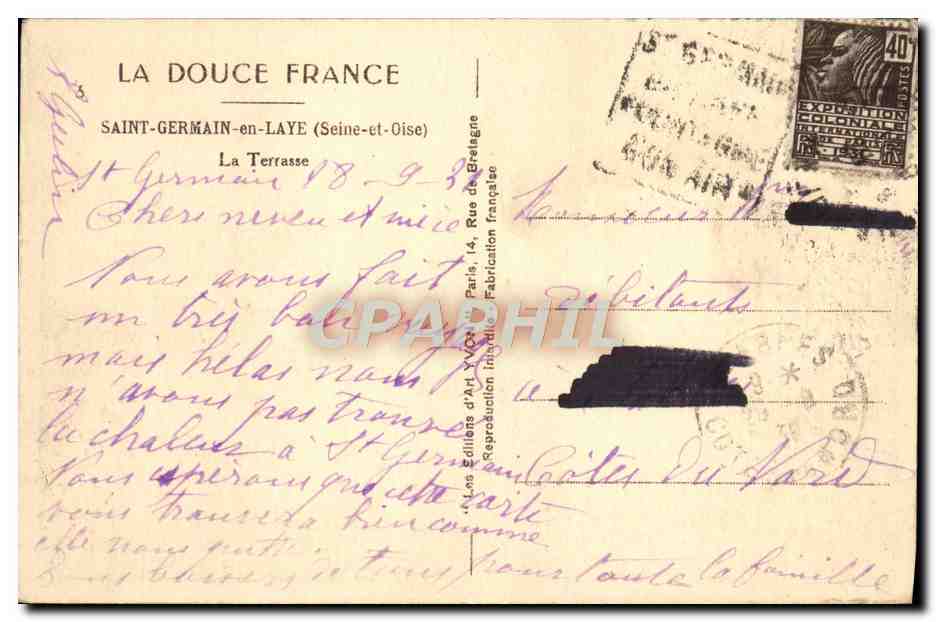 LA DOUCE FRANCE
SAINT-GERMAIN-en-LAYE (Seine-et-Oise)
La Terrasse
St Germain 18-9-31
Chers neveu et nièce
Nous avons fait
un très bon voyage
mais hélas nous
n'avons pas trouvé
la chaleur à St Germain
Nous espérons que cette carte
vous trouvera bien comme
elle nous quitte.
Bons baisers de tous pour toute la famille
Les Editions d'Art YVON, Paris, 14, Rue de Bretagne
Reproduction interdite Fabrication française
40c
POSTES
EXPOSITION
COLONIALE
INTERNATIONALE
PARIS
1931
St GERMAIN
Monsieur
Débitants
à
Côtes du Nord
CPARPHIL